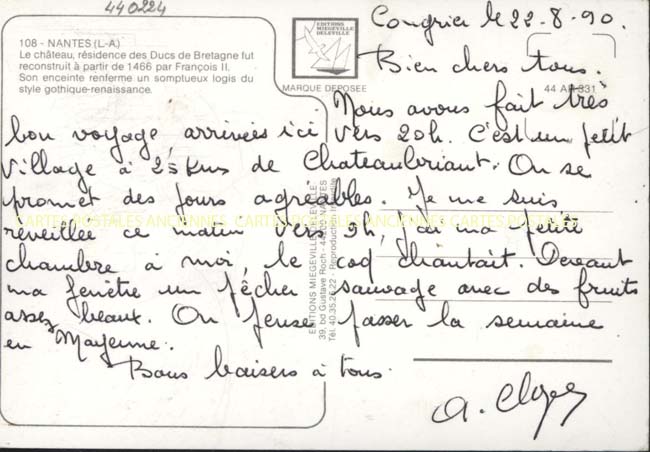 440224
108 - NANTES (L-A)
Le château, résidence des Ducs de Bretagne fut
reconstruit à partir de 1466 par François II.
Son enceinte renferme un somptueux logis du
style gothique-renaissance.
EDITIONS
MIEGEVILLE
DELEVILLE
MARQUE DEPOSEE
44 AR 331
Congrier le 22-8-90.
Bien chers tous.
Nous avons fait très
bon voyage, arrivées ici vers 20h. C'est un petit
village à 25 kms de Chateaubriant. On se
promet des jours agréables. Je me suis
réveillée ce matin vers 9h, j'ai ma petite
chambre à moi, le coq chantait. Devant
ma fenêtre un pêcher sauvage avec des fruits
assez beaux. On pense passer la semaine
en Mayenne.
Bons baisers à tous.
CARTES POSTALES ANCIENNES CARTES POSTALES ANCIENNES CARTES POSTALES
EDITIONS MIEGEVILLE DELEVILLE
39, bd Gustave Roch - NANTES
Tél. 40.35.26.22 - Reproduction interdite